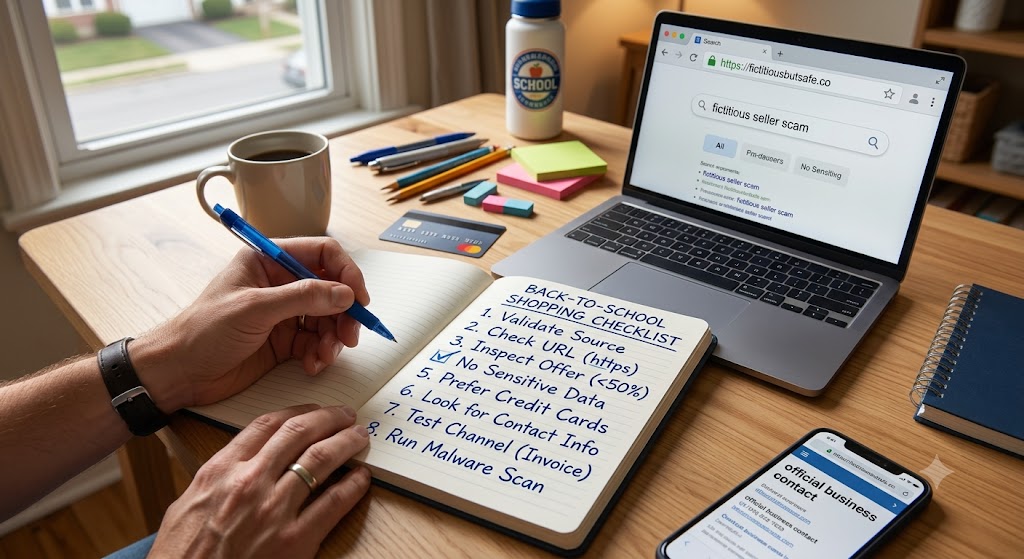 SCHOOL
Search
https://fictitiousbutsafe.co
fictitious seller scam
All
Prn-dausers
No Sensiting
fictitious seller scam
fictitious seller scam
BACK-TO-SCHOOL
SHOPPING CHECKLIST
1. Validate Source
2. Check URL (https)
3. Inspect Offer (<50%)
No Sensitive Data
5. Prefer Credit Cards
6. Look for Contact Info
7. Test Channel (Invoice)
8. Run Malware Scan
official business
contact
official business contact